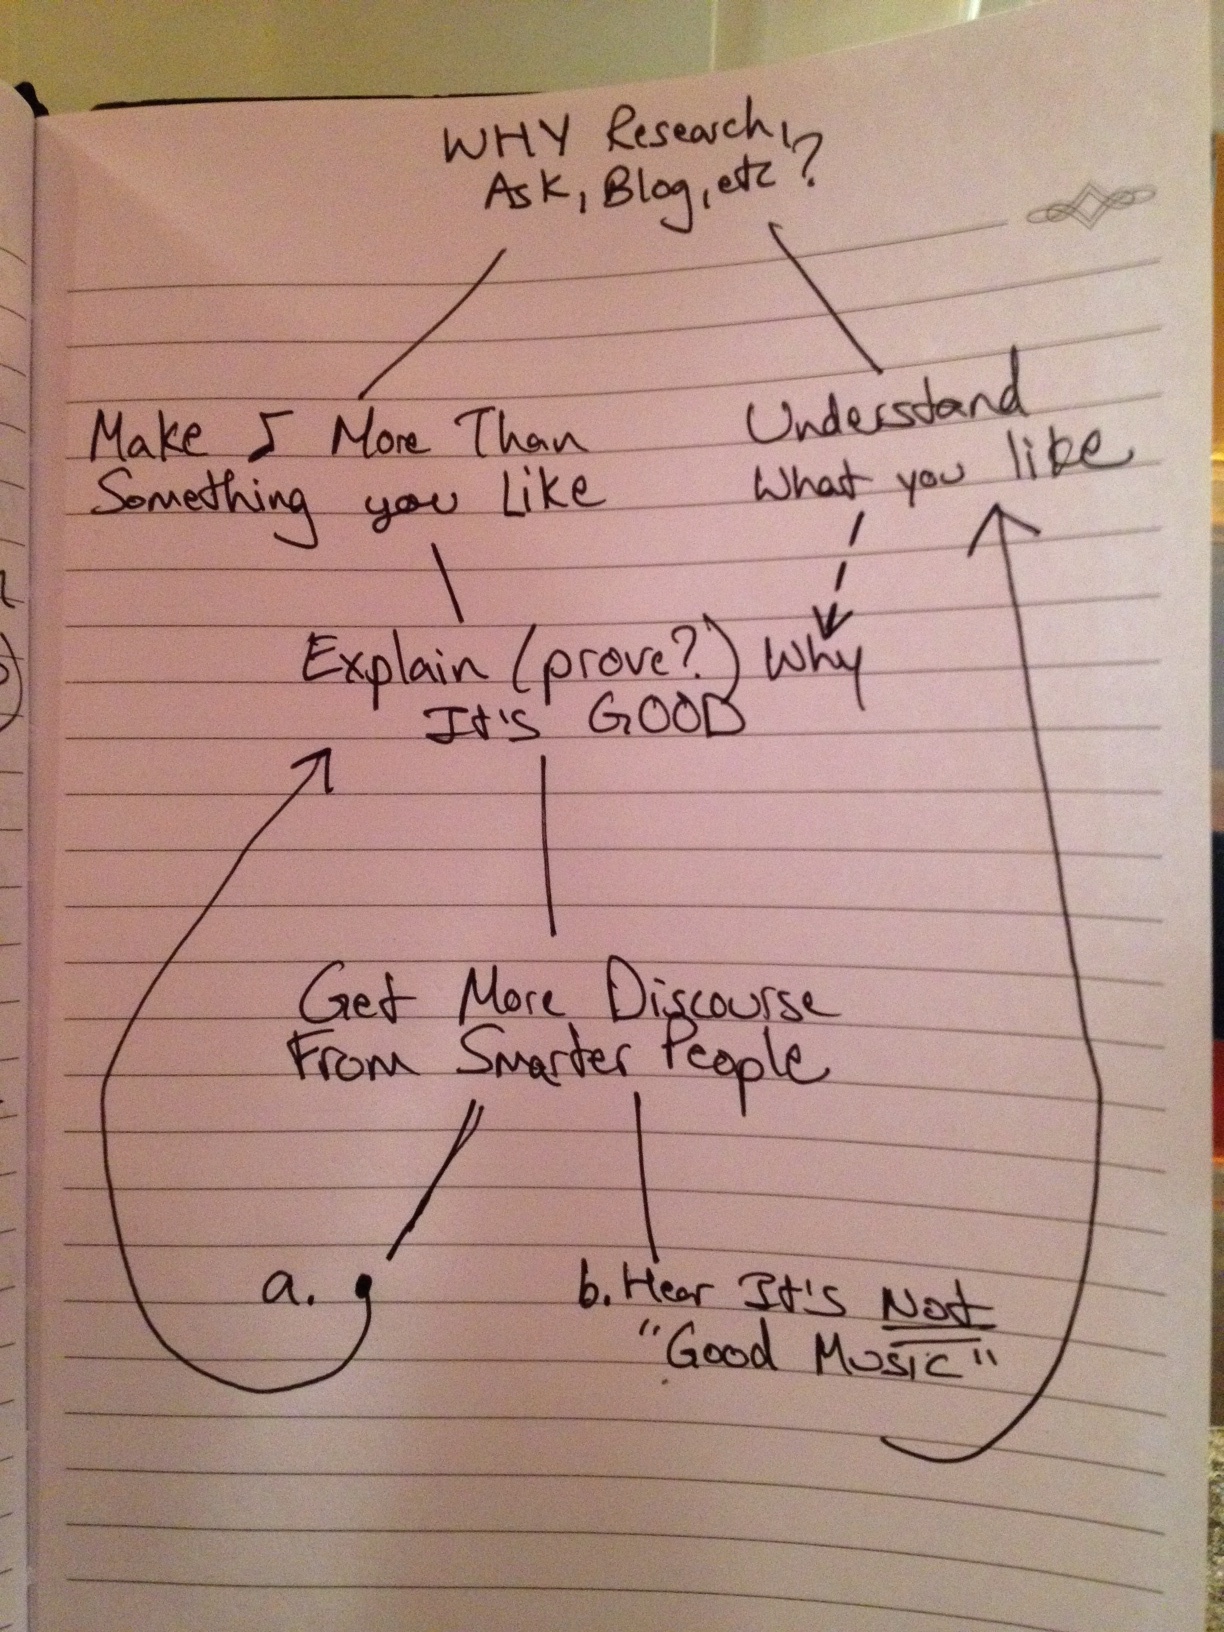 WHY Research,
Ask, Blog, etc?
Make ♪ More Than
Something you Like
Understand
What you like
Explain (prove?) Why
It's GOOD
Get More Discourse
From Smarter People
a.
b. Hear It's Not
"Good Music"